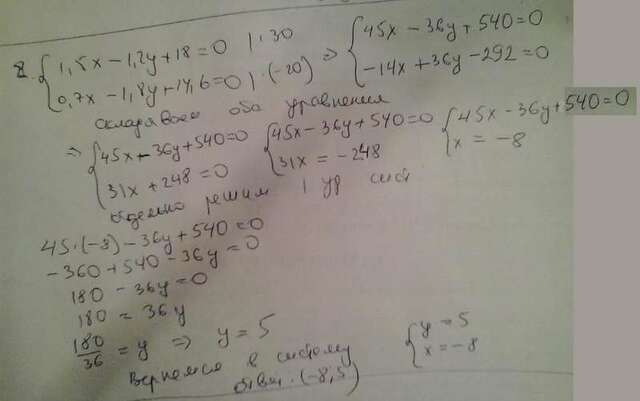 2. { 1,5x - 1,2y + 18 = 0 | · 30 ⇒ { 45x - 36y + 540 = 0
0,7x - 1,8y + 14,6 = 0 | · (-20) -14x + 36y - 292 = 0
складываем оба уравнения
⇒ { 45x - 36y + 540 = 0 { 45x - 36y + 540 = 0 { 45x - 36y + 540 = 0
31x + 248 = 0 31x = -248 x = -8
отдельно решим 1 ур сист
45 · (-8) - 36y + 540 = 0
-360 + 540 - 36y = 0
180 - 36y = 0
180 = 36y
180/36 = y ⇒ y = 5
Вернемся в систему { y = 5
x = -8
Ответ: (-8, 5)